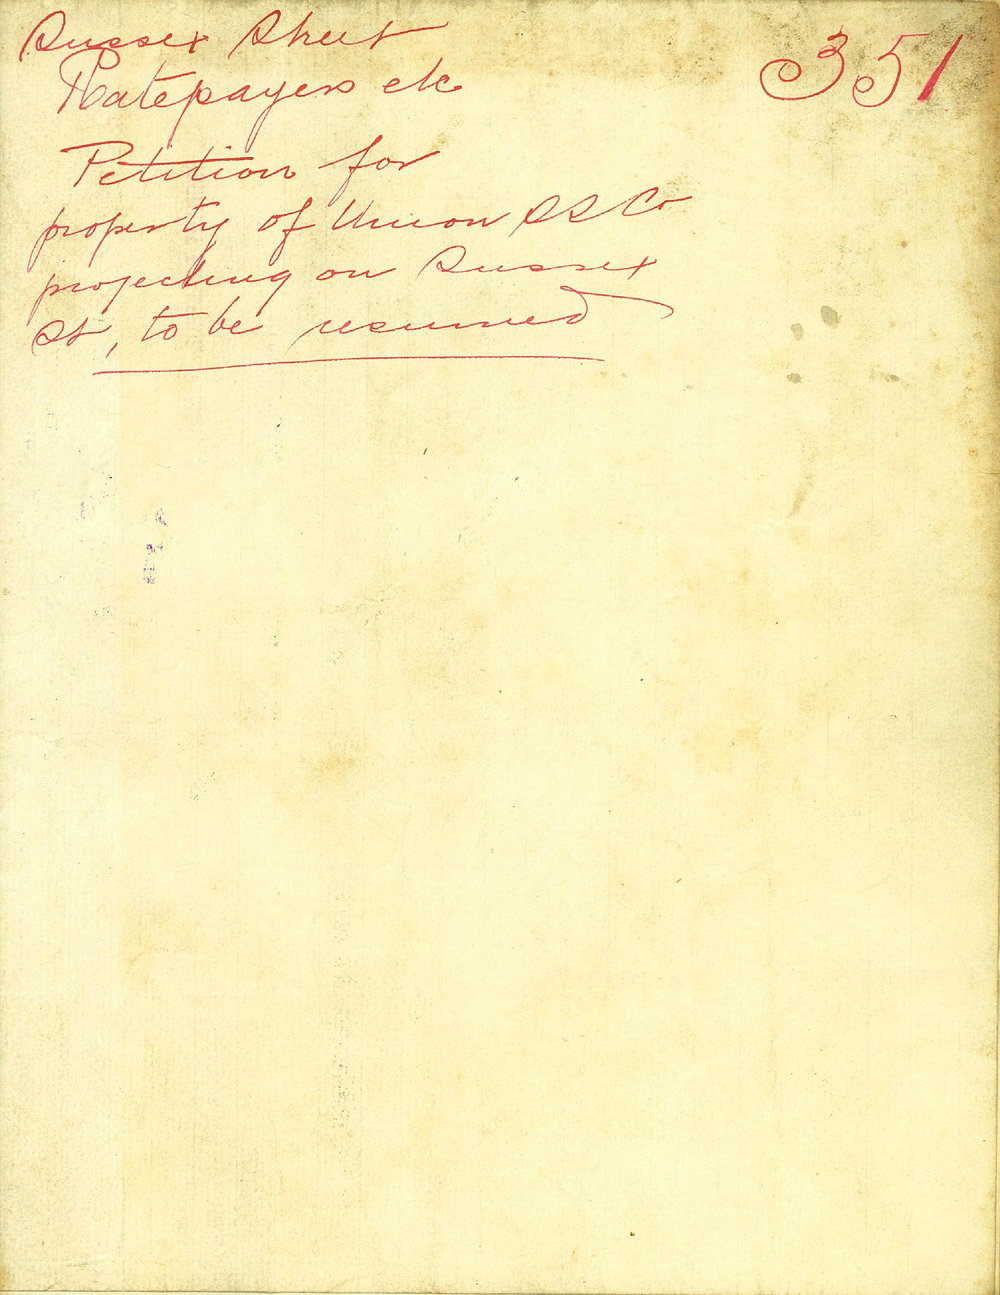 Sussex Street
Ratepayers etc
351
Petition for
property of Union SS Co
projecting on Sussex
St, to be resumed